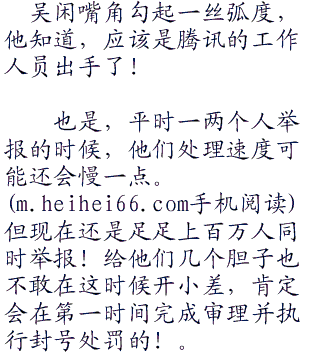 吴闲嘴角勾起一丝弧度，
他知道，应该是腾讯的工作
人员出手了！
也是，平时一两个人举
报的时候，他们处理速度可
能还会慢一点。
(m.heihei66.com手机阅读)
但现在还是足足上百万人同
时举报！给他们几个胆子也
不敢在这时候开小差，肯定
会在第一时间完成审理并执
行封号处罚的！。